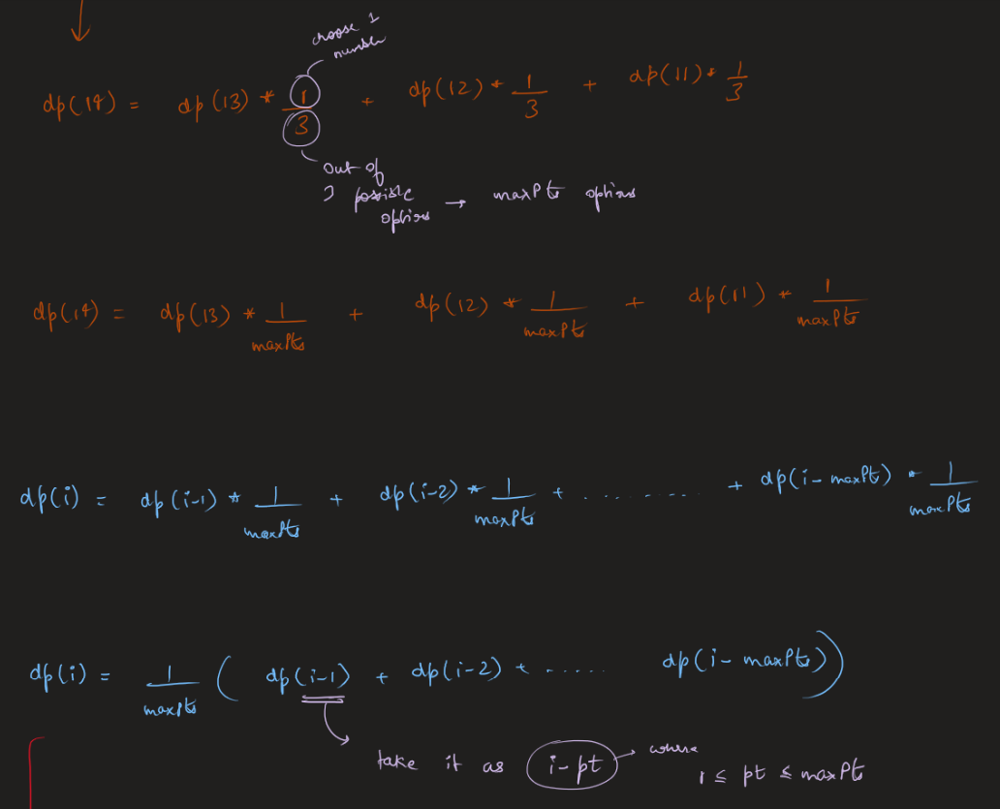 choose 1
number
dp(14) = dp(13) * 1/3 + dp(12) * 1/3 + dp(11) * 1/3
out of
3 possible
options → maxPts options
dp(14) = dp(13) * 1/maxPts + dp(12) * 1/maxPts + dp(11) * 1/maxPts
dp(i) = dp(i-1) * 1/maxPts + dp(i-2) * 1/maxPts + .......... + dp(i-maxPt) * 1/maxPts
dp(i) = 1/maxPts ( dp(i-1) + dp(i-2) + ..... dp(i-maxPts) )
take it as i-pt → where
1 ≤ pt ≤ maxPts